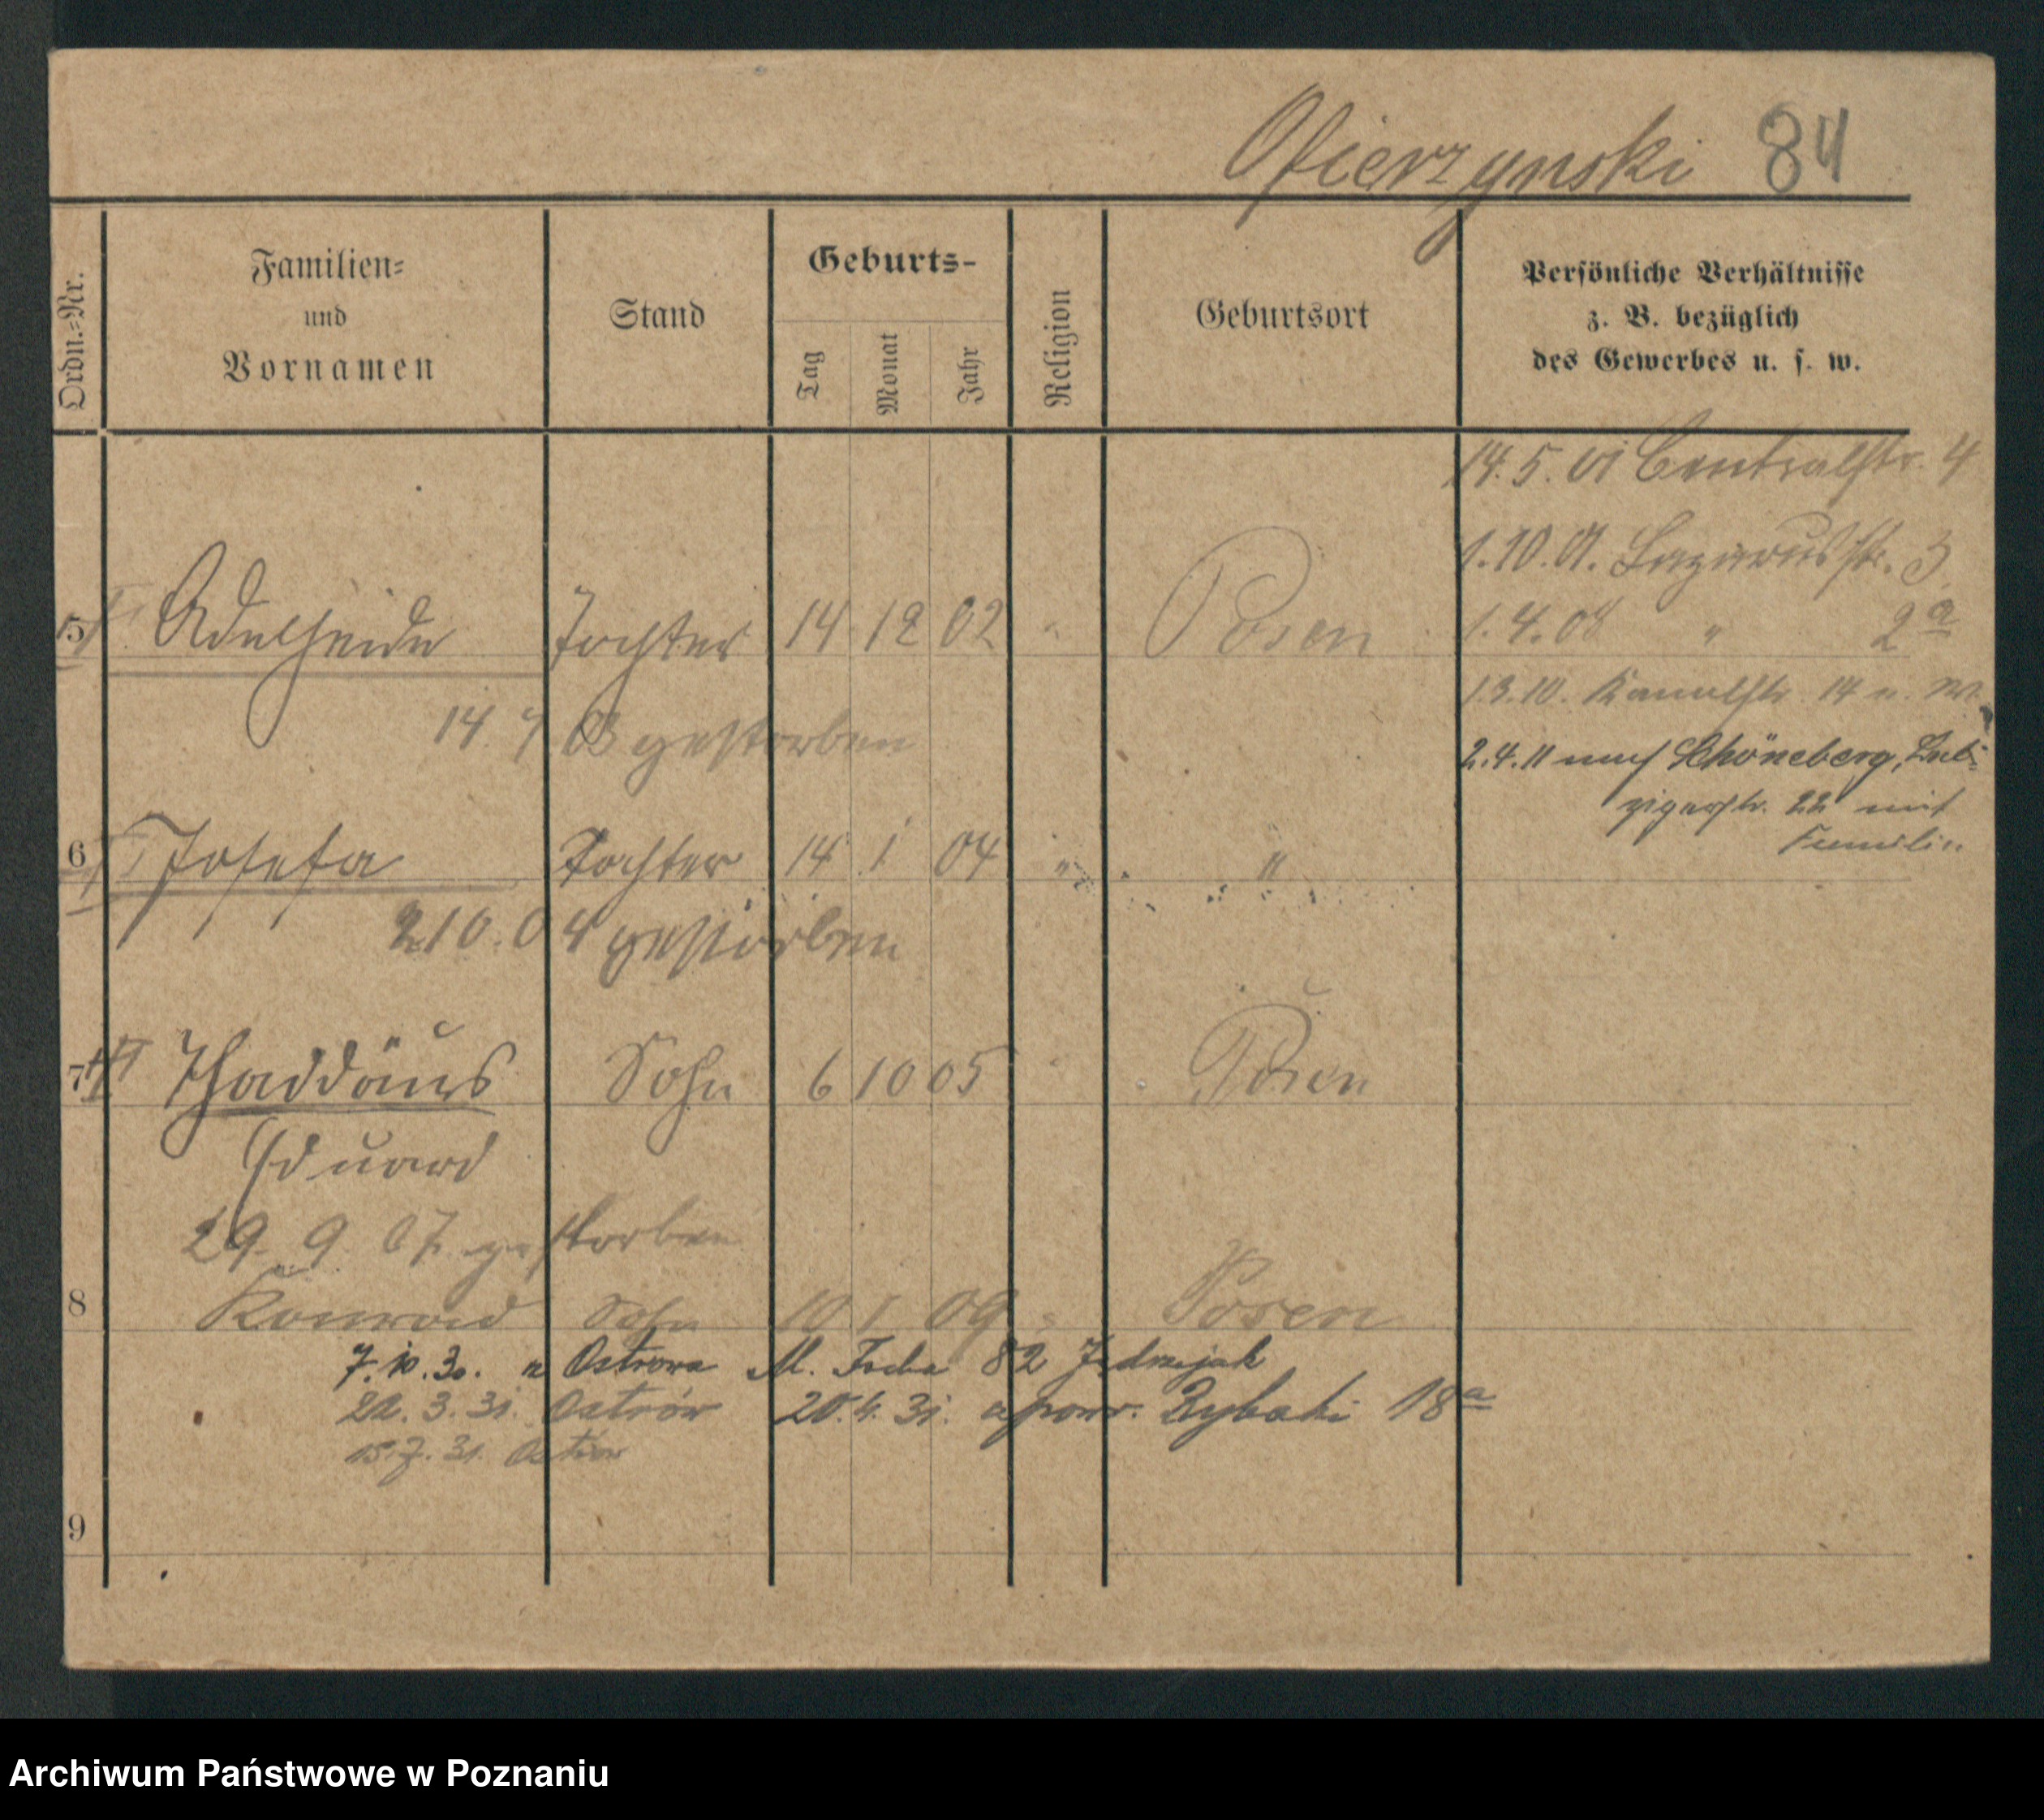 Ofierzynski 84
Ordn.=Nr.
Familien=
und
Vornamen
Stand
Geburts-
Tag
Monat
Jahr
Religion
Geburtsort
Persönliche Verhältnisse
z. B. bezüglich
des Gewerbes u. s. w.
14. 5. 01 Centralstr. 4
1. 10. 01. Lazarusstr. 3
5 Adelheide Tochter 14 12 02 Posen
1. 4. 08 " 2a
1. 3. 10. Kanalstr. 14
14. 7 03 gestorben
2. 4. 11 nach Schöneberg,
zigerstr. 22 mit
Familie
6 Josefa Tochter 14 1 04 " "
2 10. 04 gestorben
7 Thaddäus Sohn 6 10 05 Posen
Eduard
29. 9. 07. gestorben
8 Konrad Sohn 10 1 09 Posen
7. 10. 30. n Ostrowa 82 Jędrzejak
22. 3. 31. Ostrów 20. 4. 31. z powr. Rybaki 18a
15. 7. 31. Ostrów
9
Archiwum Państwowe w Poznaniu